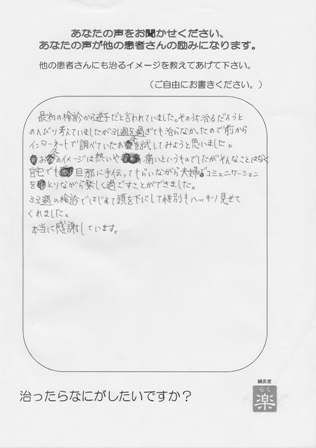 あなたの声をお聞かせください、
あなたの声が他の患者さんの励みになります。
他の患者さんにも治るイメージを教えてあげて下さい。
（ご自由にお書きください。）
最初の検診から逆子だと言われていました。そのうち治るだろうと
のんびり考えていましたが31週を過ぎても治らなかったので前から
インターネットで調べていたお灸を試してみようと思いました。
お灸のイメージは熱いや 痛いというものでしたがそんなことはなく
自宅でも 旦那に手伝ってもらいながら夫婦でコミュニケーション
をとりながら楽しく過ごすことができました。
33週の検診ではじめて頭を下にして性別もハッキリ見せて
くれました。
本当に感謝しています。
治ったらなにがしたいですか？
鍼灸室
らく
楽